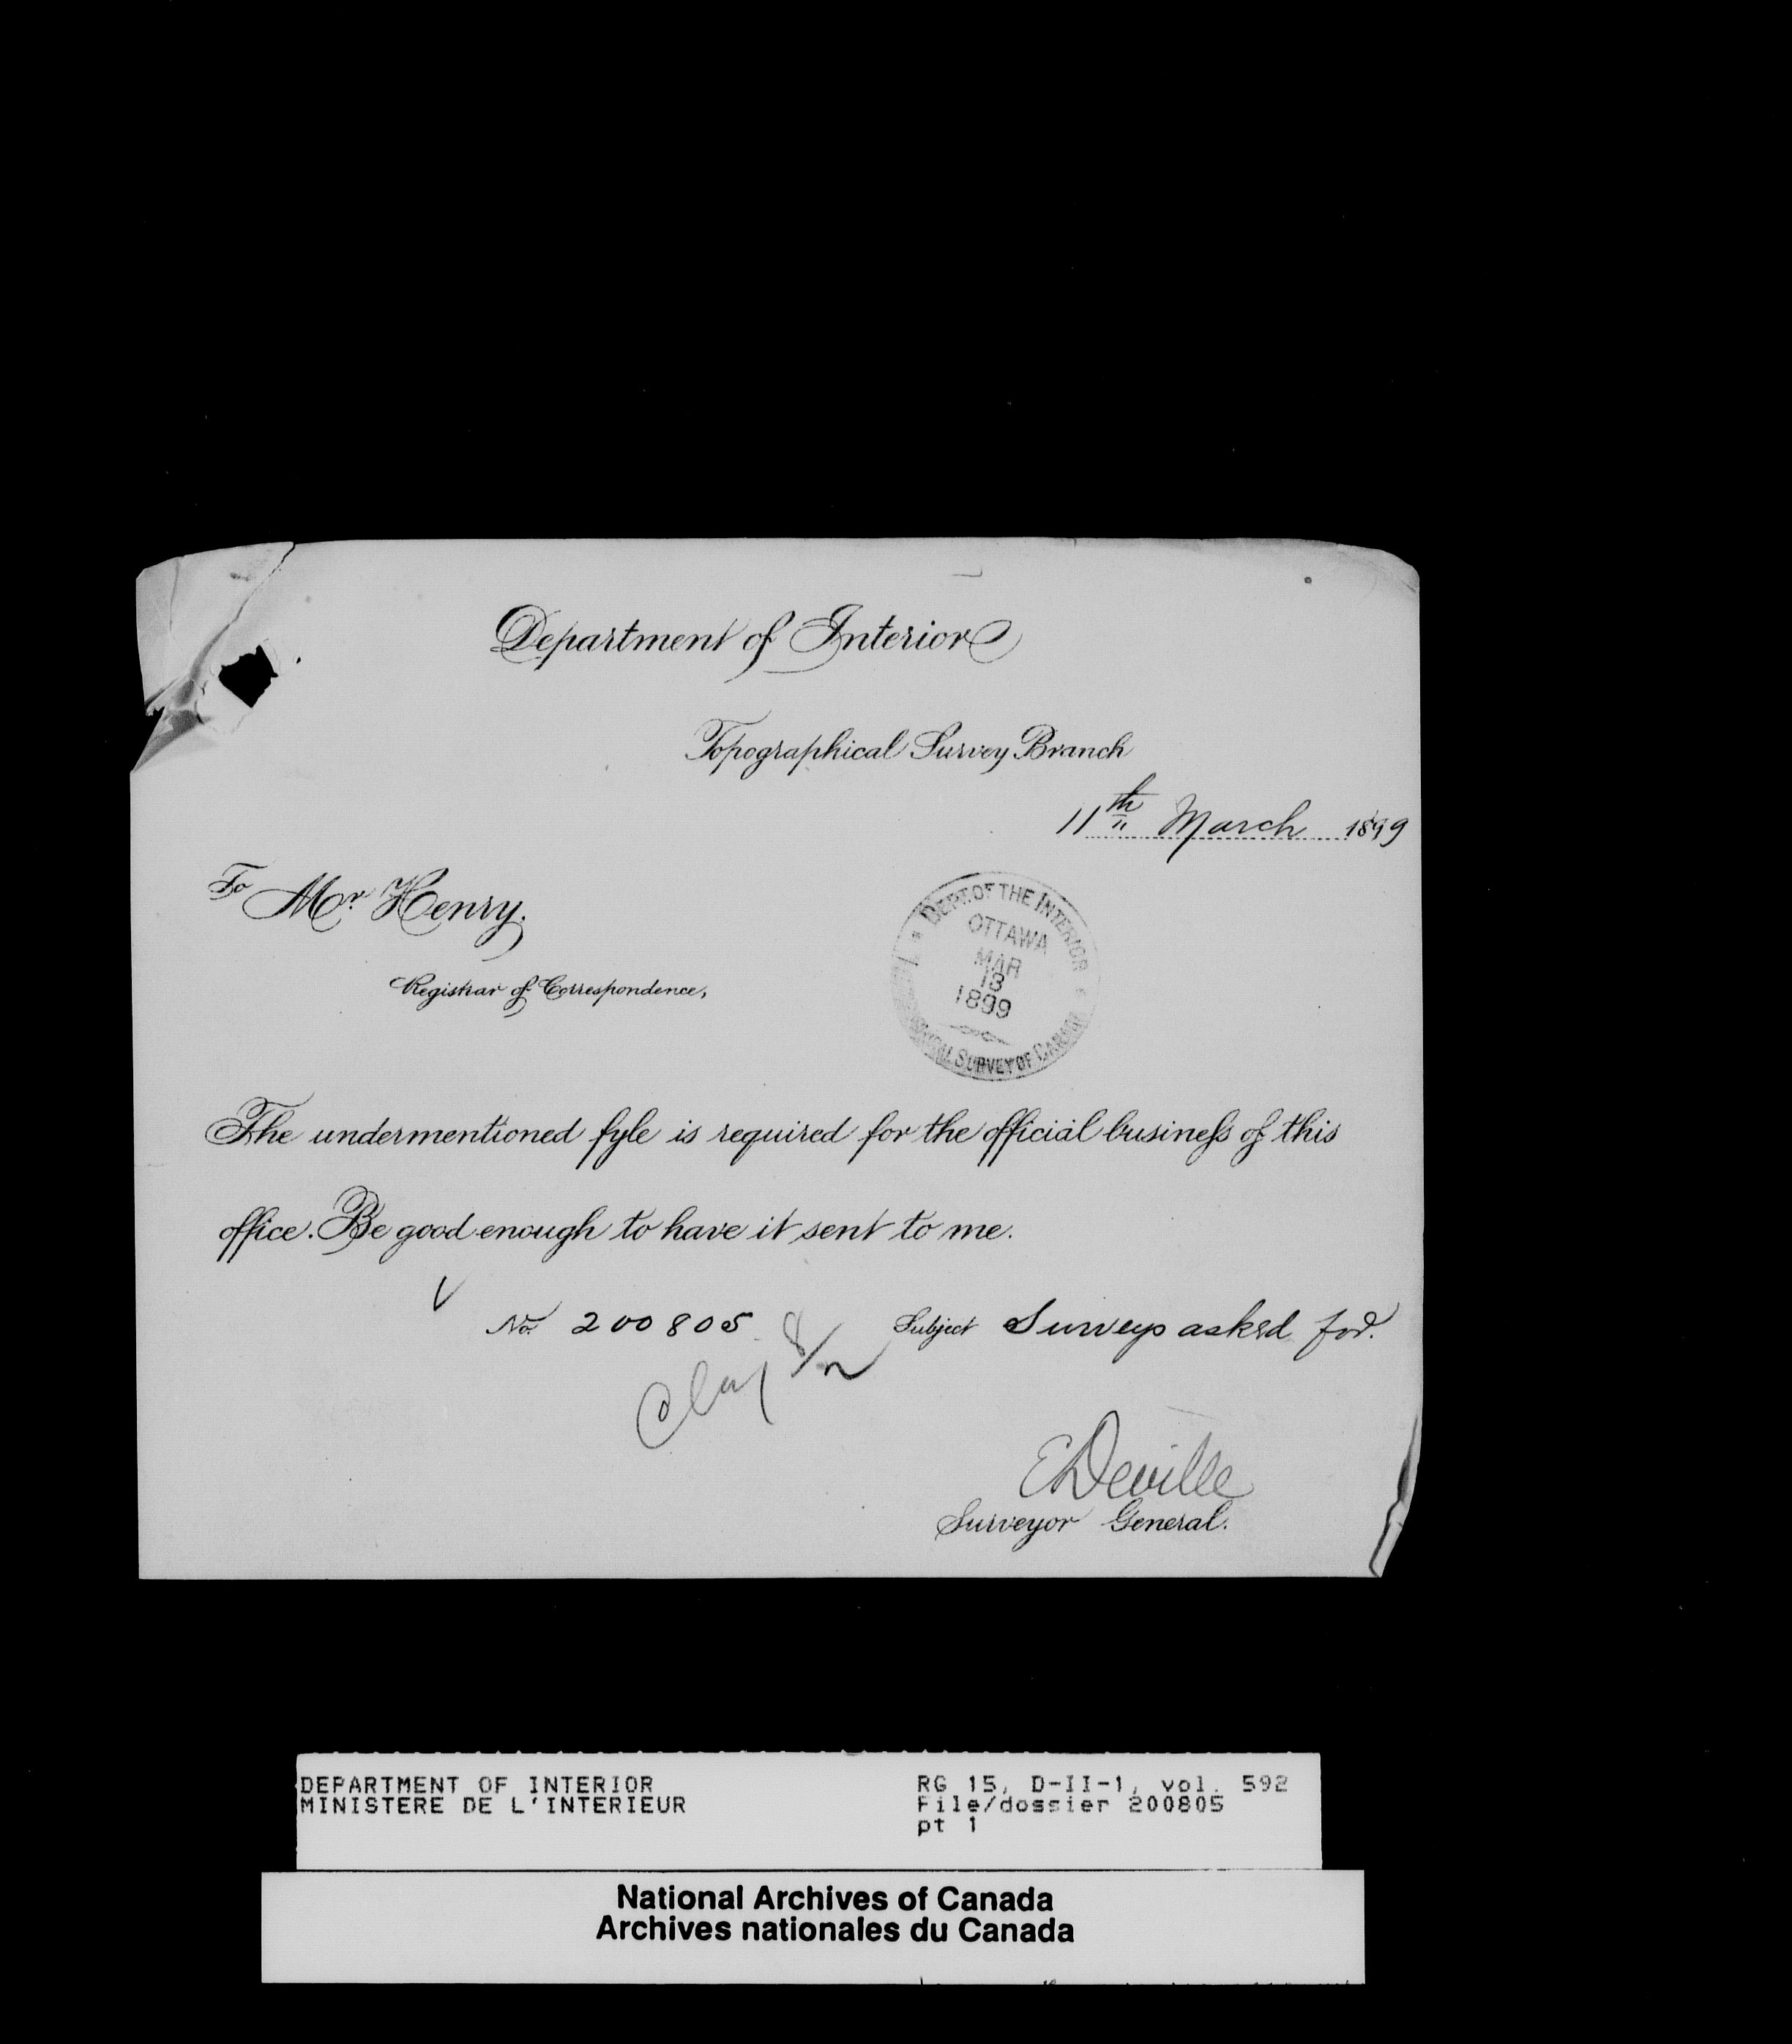 Department of Interior
Topographical Survey Branch
11th March 1899
To Mr. Henry.
Registrar of Correspondence,
DEPT. OF THE INTERIOR
OTTAWA
MAR
13
1899
SURVEY OF CANADA
The undermentioned fyle is required for the official business of this
office. Be good enough to have it sent to me.
No. 200805 Subject Surveys asked for.
E Deville
Surveyor General.
DEPARTMENT OF INTERIOR
MINISTERE DE L'INTERIEUR
RG 15, D-II-1, vol. 592
File/dossier 200805
pt 1
National Archives of Canada
Archives nationales du Canada